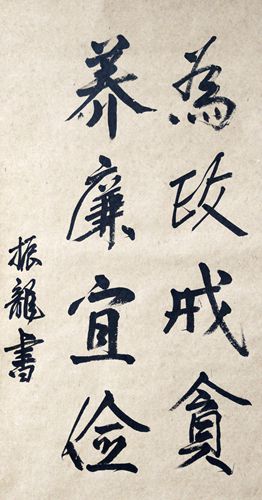 為政戒貪
养廉宜儉
振龍書